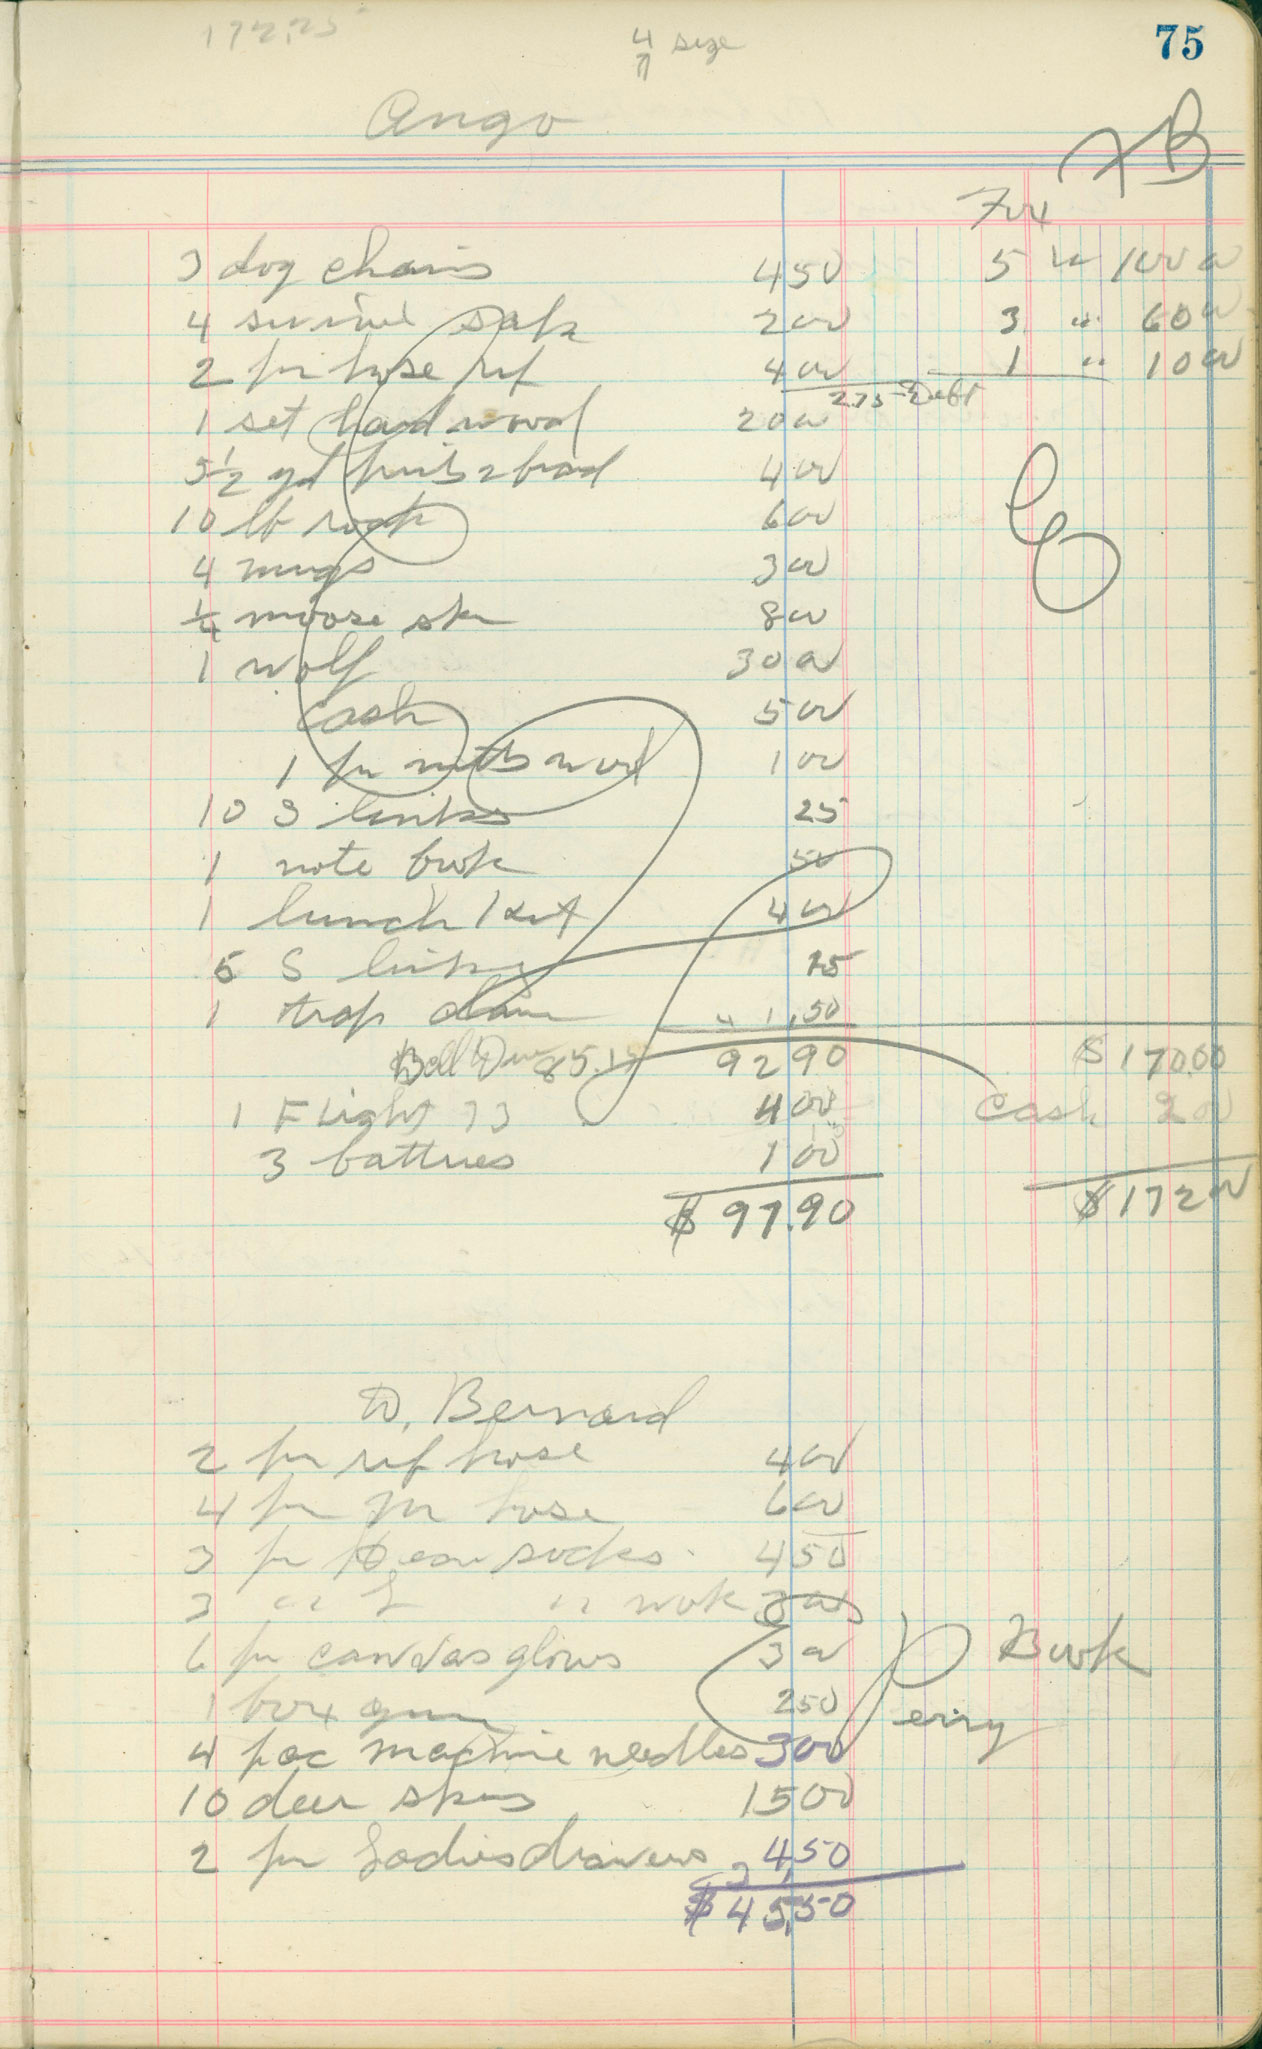 172.25
4/7 size
75
Ango
XB
Fox
3 dog chains 4 50 5 " 100 00
4 swivel 2 00 3 " 60 00
2 pr hose ref 4 00 1 " 10 00
2.75 Debt
1 set hard wood 20 00
5 1/2 yd 4 00
10 lb rock 6 00
4 mugs 3 00
1/4 moose skn 8 00
1 wolf 30 00
Cash 5 00
1 pr mitts wool 1 00
10 S links 25
1 note book 50
1 lunch kit 4 00
5 S links 15
1 trap chain 1.50
Ball Due 85.15 92 90 $170.00
1 F Light 4 00 Cash 2 00
3 batteries 1 00
$97.90 $172 00
D. Bernard
2 pr ref hose 4 00
4 pr hose 6 00
3 pr socks 4 50
3 " " work 3 00
6 pr canvas gloves 3 00 Book
1 box gum 2 50 Perry
4 pac machine needles 3 00
10 deer skns 15 00
2 pr Ladies drawers 4 50
$45.50